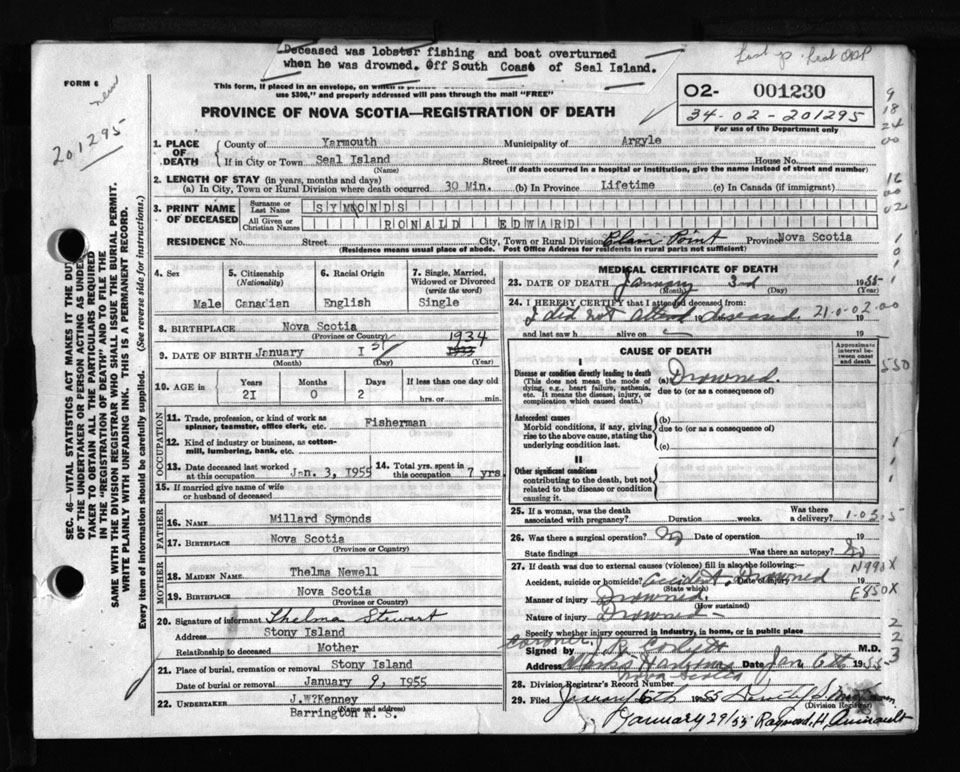 Deceased was lobster fishing and boat overturned
when he was drowned. Off South Coast of Seal Island.
FORM 6
new
201295
This form, if placed in an envelope, on which is
use $300," and properly addressed will pass through the mail "FREE"
PROVINCE OF NOVA SCOTIA—REGISTRATION OF DEATH
02- 001230
34-02-201295
For use of the Department only
SEC. 46—VITAL STATISTICS ACT MAKES IT THE DUTY
OF THE UNDERTAKER OR PERSON ACTING AS UNDER-
TAKER TO OBTAIN ALL THE PARTICULARS REQUIRED
IN THE "REGISTRATION OF DEATH" AND TO FILE THE
SAME WITH THE DIVISION REGISTRAR WHO SHALL ISSUE THE BURIAL PERMIT.
WRITE PLAINLY WITH UNFADING INK. THIS IS A PERMANENT RECORD.
Every item of information should be carefully supplied. (See reverse side for instructions.)
1. PLACE OF DEATH
County of Yarmouth Municipality of Argyle
If in City or Town Seal Island Street House No.
(Name) (If death occurred in a hospital or institution, give the name instead of street and number)
2. LENGTH OF STAY (in years, months and days)
(a) In City, Town or Rural Division where death occurred 30 Min. (b) In Province Lifetime (c) In Canada (if immigrant)
3. PRINT NAME OF DECEASED
Surname or Last Name SYMONDS
All Given or Christian Names RONALD EDWARD
RESIDENCE No. Street City, Town or Rural Division Clam Point Province Nova Scotia
(Residence means usual place of abode. Post Office Address for residents in rural parts not sufficient)
4. Sex
Male
5. Citizenship (Nationality)
Canadian
6. Racial Origin
English
7. Single, Married, Widowed or Divorced (write the word)
Single
8. BIRTHPLACE Nova Scotia
(Province or Country)
9. DATE OF BIRTH January 1st 1934
(Month) (Day) (Year)
10. AGE in Years Months Days If less than one day old
21 0 2 hrs. or min.
OCCUPATION
11. Trade, profession, or kind of work as
spinner, teamster, office clerk, etc. Fisherman
12. Kind of industry or business, as cotton-
mill, lumbering, bank, etc.
13. Date deceased last worked at this occupation Jan. 3, 1955
14. Total yrs. spent in this occupation 7 yrs.
15. If married give name of wife
or husband of deceased
FATHER
16. NAME Millard Symonds
17. BIRTHPLACE Nova Scotia
(Province or Country)
MOTHER
18. MAIDEN NAME Thelma Newell
19. BIRTHPLACE Nova Scotia
(Province or Country)
20. Signature of informant Thelma Stewart
Address Stony Island
Relationship to deceased Mother
21. Place of burial, cremation or removal Stony Island
Date of burial or removal January 9, 1955
22. UNDERTAKER J.W?Kenney
(Name and address)
Barrington N. S.
MEDICAL CERTIFICATE OF DEATH
23. DATE OF DEATH January 3rd 1955
(Month) (Day) (Year)
24. I HEREBY CERTIFY that I attended deceased from:
I did not attend deceased. 21-0-02-00
19
and last saw h alive on 19
CAUSE OF DEATH
Approximate interval between onset and death
I
Disease or condition directly leading to death
(This does not mean the mode of
dying, e.g., heart failure, asthenia,
etc. It means the disease, injury, or
complication which caused death.)
(a) Drowned.
due to (or as a consequence)
Antecedent causes
Morbid conditions, if any, giving
rise to the above cause, stating the
underlying condition last.
(b)
due to (or as a consequence)
(c)
II
Other significant conditions
contributing to the death, but not
related to the disease or condition
causing it.
25. If a woman, was the death
associated with pregnancy? Duration weeks. Was there a delivery? 1-03-5
26. Was there a surgical operation? No Date of operation 19
State findings Was there an autopsy? No
27. If death was due to external causes (violence) fill in also the following: N990X
Accident, suicide or homicide? Accident. Drowned Date of injury 19
(State which) E850X
Manner of injury Drowned.
(How sustained)
Nature of injury Drowned
Specify whether injury occurred in industry, in home, or in public place
Coroner.
Signed by M.D.
Address Clarks Harbour Date Jan 6th 1955
Nova Scotia
28. Division Registrar's Record Number
29. Filed January 6th 1955
(Division Registrar)
January 29/55